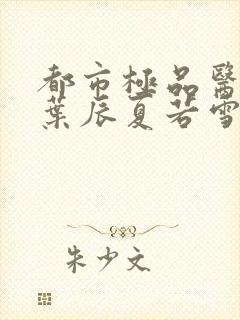 都市極品醫
葉辰夏若雪
朱少文